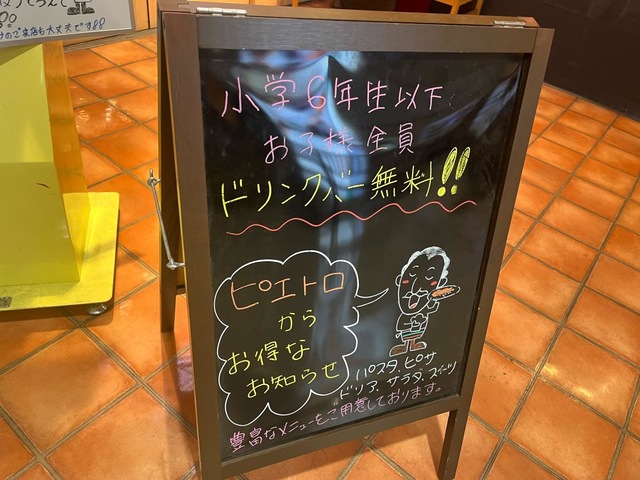 のご来店も大丈夫です!!
小学6年生以下
お子様全員
ドリンクバー無料!!
ピエトロ
から
お得な
お知らせ
パスタ、ピザ
ドリア、サラダ、スイーツ
豊富なメニューをご用意しております。